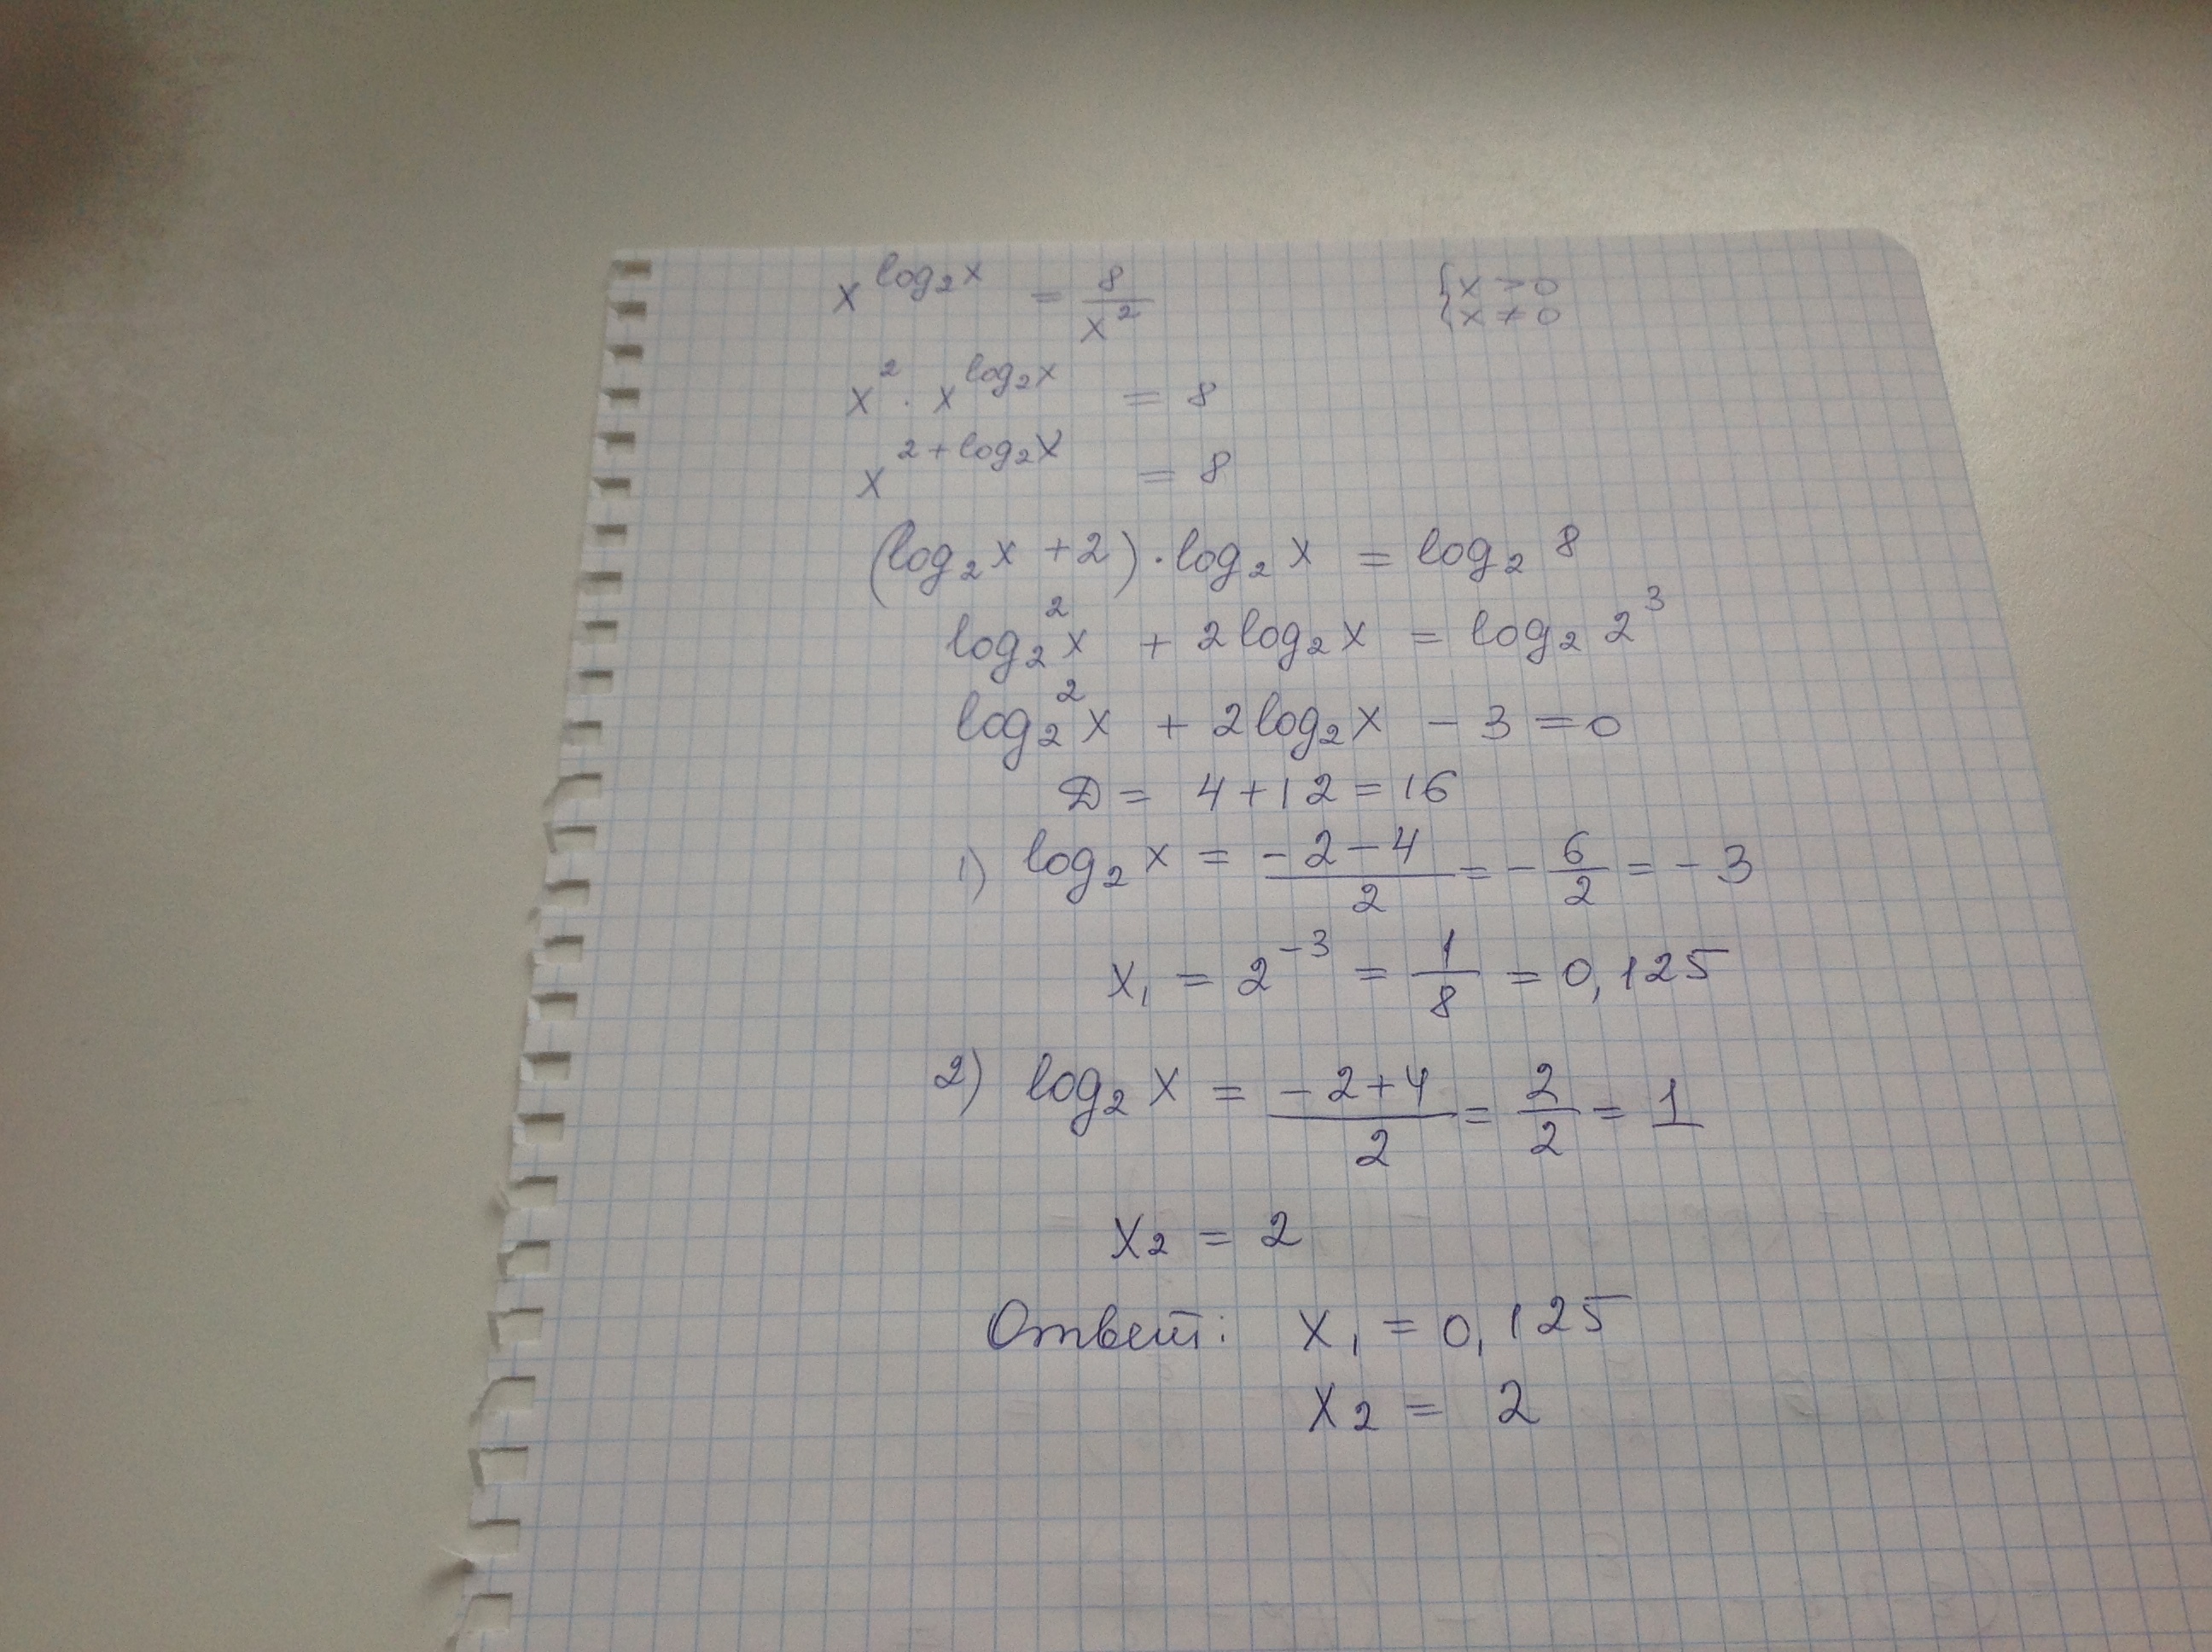 x^(log₂x) = 8/x²   { x > 0
{ x ≠ 0
x² · x^(log₂x) = 8
x^(2+log₂x) = 8
(log₂x + 2) · log₂x = log₂ 8
log₂²x + 2log₂x = log₂ 2³
log₂²x + 2log₂x - 3 = 0
D = 4 + 12 = 16
1) log₂x = (-2-4)/2 = -6/2 = -3
x₁ = 2⁻³ = 1/8 = 0,125
2) log₂x = (-2+4)/2 = 2/2 = 1
x₂ = 2
Ответ: x₁ = 0,125
x₂ = 2